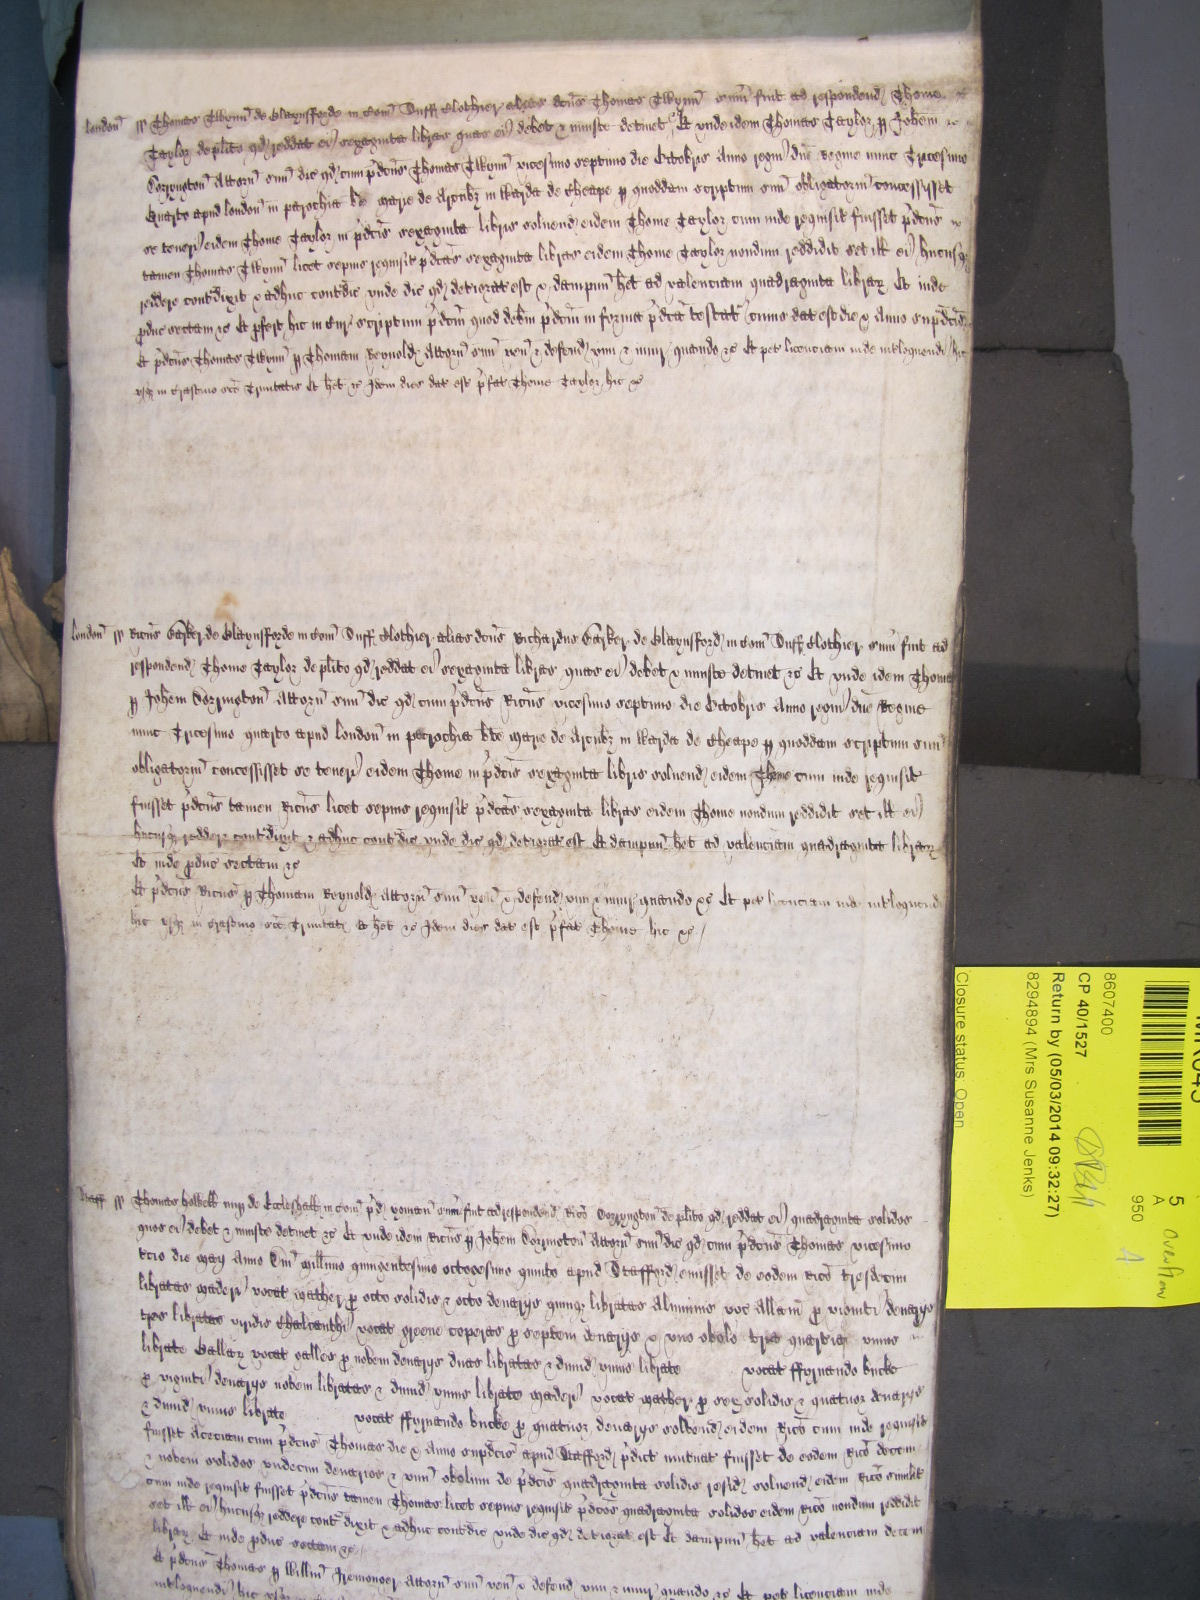 london ss Thomas Wynn de Glaynsforde in Com Suff Clothier alias dcus Thomas Wynn sum fuit ad respondend Thome
Taylor de plito qd reddat ei sexaginta libras quas ei debet & iniuste detinet Et unde idem Thomas Taylor p Johem
Dorryngton Attorn suu dic qd cum pdcus Thomas vicesimo septimo die Octobris Anno regni dne Regine nunc Tricesimo
Quarto apud london in parochia be Marie de Arcubz in Warda de Cheape p quoddam scriptum suu obligatoriu concessisset
se teneri eidem Thome Taylor in pdcis sexaginta libris solvend eidem Thome Taylor cum inde requisit fuisset pdcus
tamen Thomas licet sepius requisit pdcas sexaginta libras eidem Thome Taylor nondum reddidit set ill ei hucusqz
reddere contdixit & adhuc contdic unde dic qd deteriorat est & dampnu het ad valenciam quadraginta librarz Et inde
pduc sectam &c Et pfert hic in Cur scriptum pdcm quod debm pdcm in forma pdca testat cuius dat est die & Anno supdcis
Et pdcus Thomas p Thomam Reynold Attorn suu ven & defend vim & iniur quando &c Et pet licenciam inde intloquendi hic
usqz in Crastino sce Trinitatis Et het &c Idem dies dat est pfat Thome Taylor hic &c
london ss Ricus Barker de Glaynsforde in Com Suff Clothier alias dcus Richardus Barker de Glaynsford in Com Suff Clothier sum fuit ad
respondend Thome Taylor de plito qd reddat ei sexaginta libras quas ei debet & iniuste detinet &c Et unde idem Thomas
p Johem Dorrington Attorn suu dic qd cum pdcus Ricus vicesimo septimo die Octobris Anno regni dne Regine
nunc Tricesimo quarto apud london in parochia be Marie de Arcubz in Warda de Cheape p quoddam scriptum suu
obligatoriu concessisset se teneri eidem Thome in pdcis sexaginta libris solvend eidem Thome cum inde requisit
fuisset pdcus tamen Ricus licet sepius requisit pdcas sexaginta libras eidem Thome nondum reddidit set ill ei
hucusqz reddere contdixit & adhuc contdic unde dic qd deteriorat est Et dampnu het ad valenciam quadraginta librarz
Et inde pduc sectam &c
Et pdcus Ricus p Thomam Reynold Attorn suu ven & defend vim & iniur quando &c Et pet licenciam inde intloquend
hic usqz in Crastino sce Trinitatis Et het &c Idem dies dat est pfat Thome hic &c
Staff ss Thomas nup de Eccleshall in Com pd yoman sum fuit ad respondend Rico Dorryngton de plito qd reddat ei quadraginta solidos
quos ei debet & iniuste detinet &c Et unde idem Ricus p Johem Dorington Attorn suu dic qd cum pdcus Thomas vicesimo
tcio die May Anno Dni millimo quingentesimo octogesimo quinto apud Stafford emisset de eodem Rico tresdecim
libratas maderi vocat mather p octo solidis & octo denarijs quinqz libratas Aluminis voc Allam p viginti denarijs
tres libratas viridis Chalcanthi vocat greene coperas p septem denarijs & uno obolo tria quartia unius
librate Gallarz vocat galles p novem denarijs duas libratas & dimid unius librate vocat ffyrnando bucke
p viginti denarijs novem libratas & dimid unius librate maderi vocat mather p sex solidis & quatuor denarijs
& dimid unius librate vocat ffyrnando bucke p quatuor denarijs solvend eidem Rico cum inde requisit
fuisset Acetiam cum pdcus Thomas die & Anno supdcis apud Stafford pdict mutuat fuisset de eodem Rico decem
& novem solidos undecim denarios & unu obolum de pdcis quadraginta solidis resid solvend eidem Rico similit
cum inde requisit fuisset pdcus tamen Thomas licet sepius requisit pdcos quadraginta solidos eidem Rico nondum reddidit
set ill ei hucusqz reddere contdixit & adhuc contdic unde dic qd deteriorat est Et dampnu het ad valenciam decem
librarz Et inde pduc sectam &c
Et pdcus Thomas p Willm Iremonger Attorn suu ven & defend vim & iniur quando &c Et pet licenciam inde
intloquendi hic
8607400
CP 40/1527
Return by (05/03/2014 09:32:27)
8294894 (Mrs Susanne Jenks)
Closure status: Open
5
A
950
Overflow